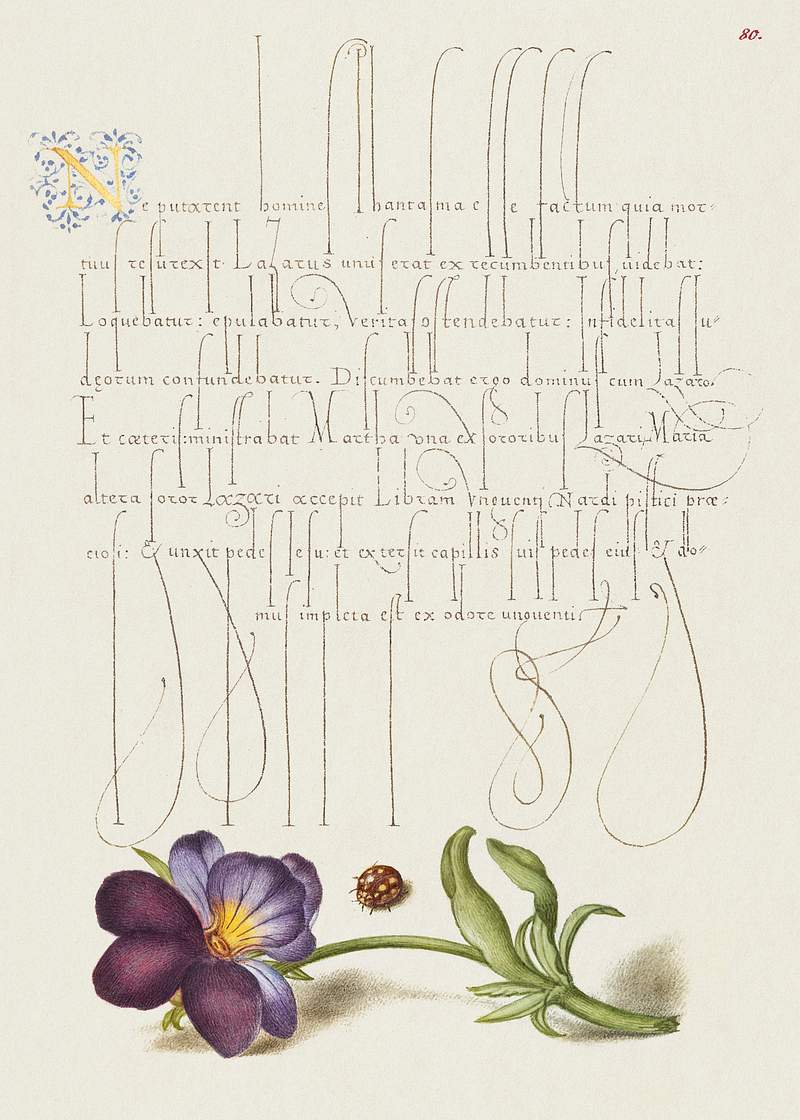 80.
Ne putarent homines phantasma esse factum quia mor⸗
tuus resurexit. Lazarus unus erat ex recumbentibus, uidebat:
Loquebatur: epulabatur, Veritas ostendebatur: Infidelitas Iu⸗
dęorum confundebatur. Discumbebat ergo dominus cum Lazaro.
Et cæteris: ministrabat Martha vna ex sororibus Lazari, Maria
altera soror Lazari accepit Libram Vnguenti Nardi pistici præ⸗
ciosi: & unxit pedes Iesu: et extersit capillis suis pedes eius & do⸗
mus impleta est ex odore unguenti.